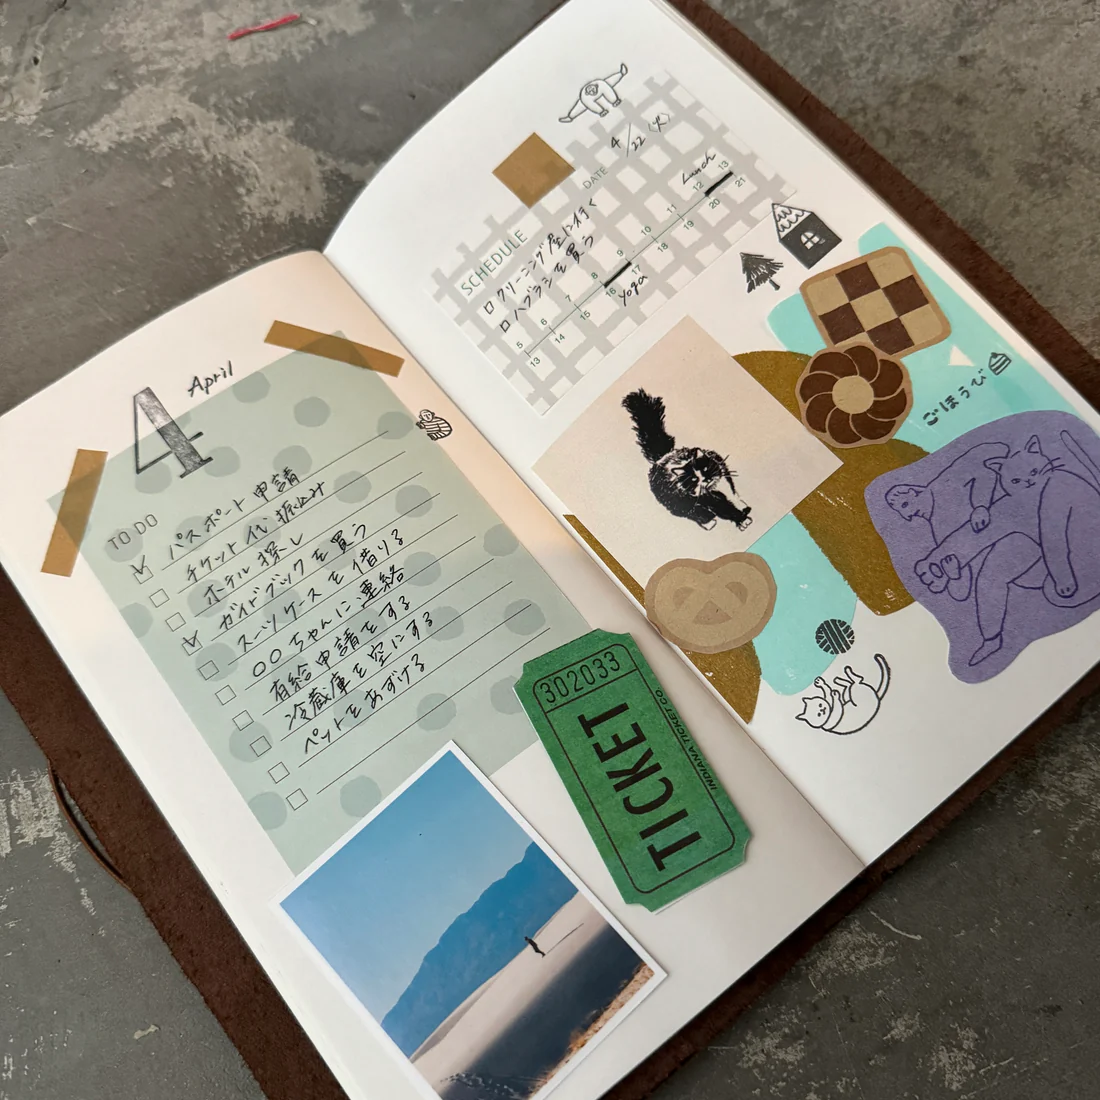 4 April
TO DO
パスポート申請
チケット代振込み
ホテル探し
ガイドブックを買う
スーツケースを借りる
○○ちゃんに連絡
有給申請をする
冷蔵庫を空にする
ペットをあずける
302033
TICKET
INDIANA TICKET CO
DATE 4/22 (火)
SCHEDULE
クリーニング屋に行く
ハブラシを買う
Lunch
5 6 7 8 9 10 11 12 13
13 14 15 16 17 18 19 20 21
Yoga
ごほうび